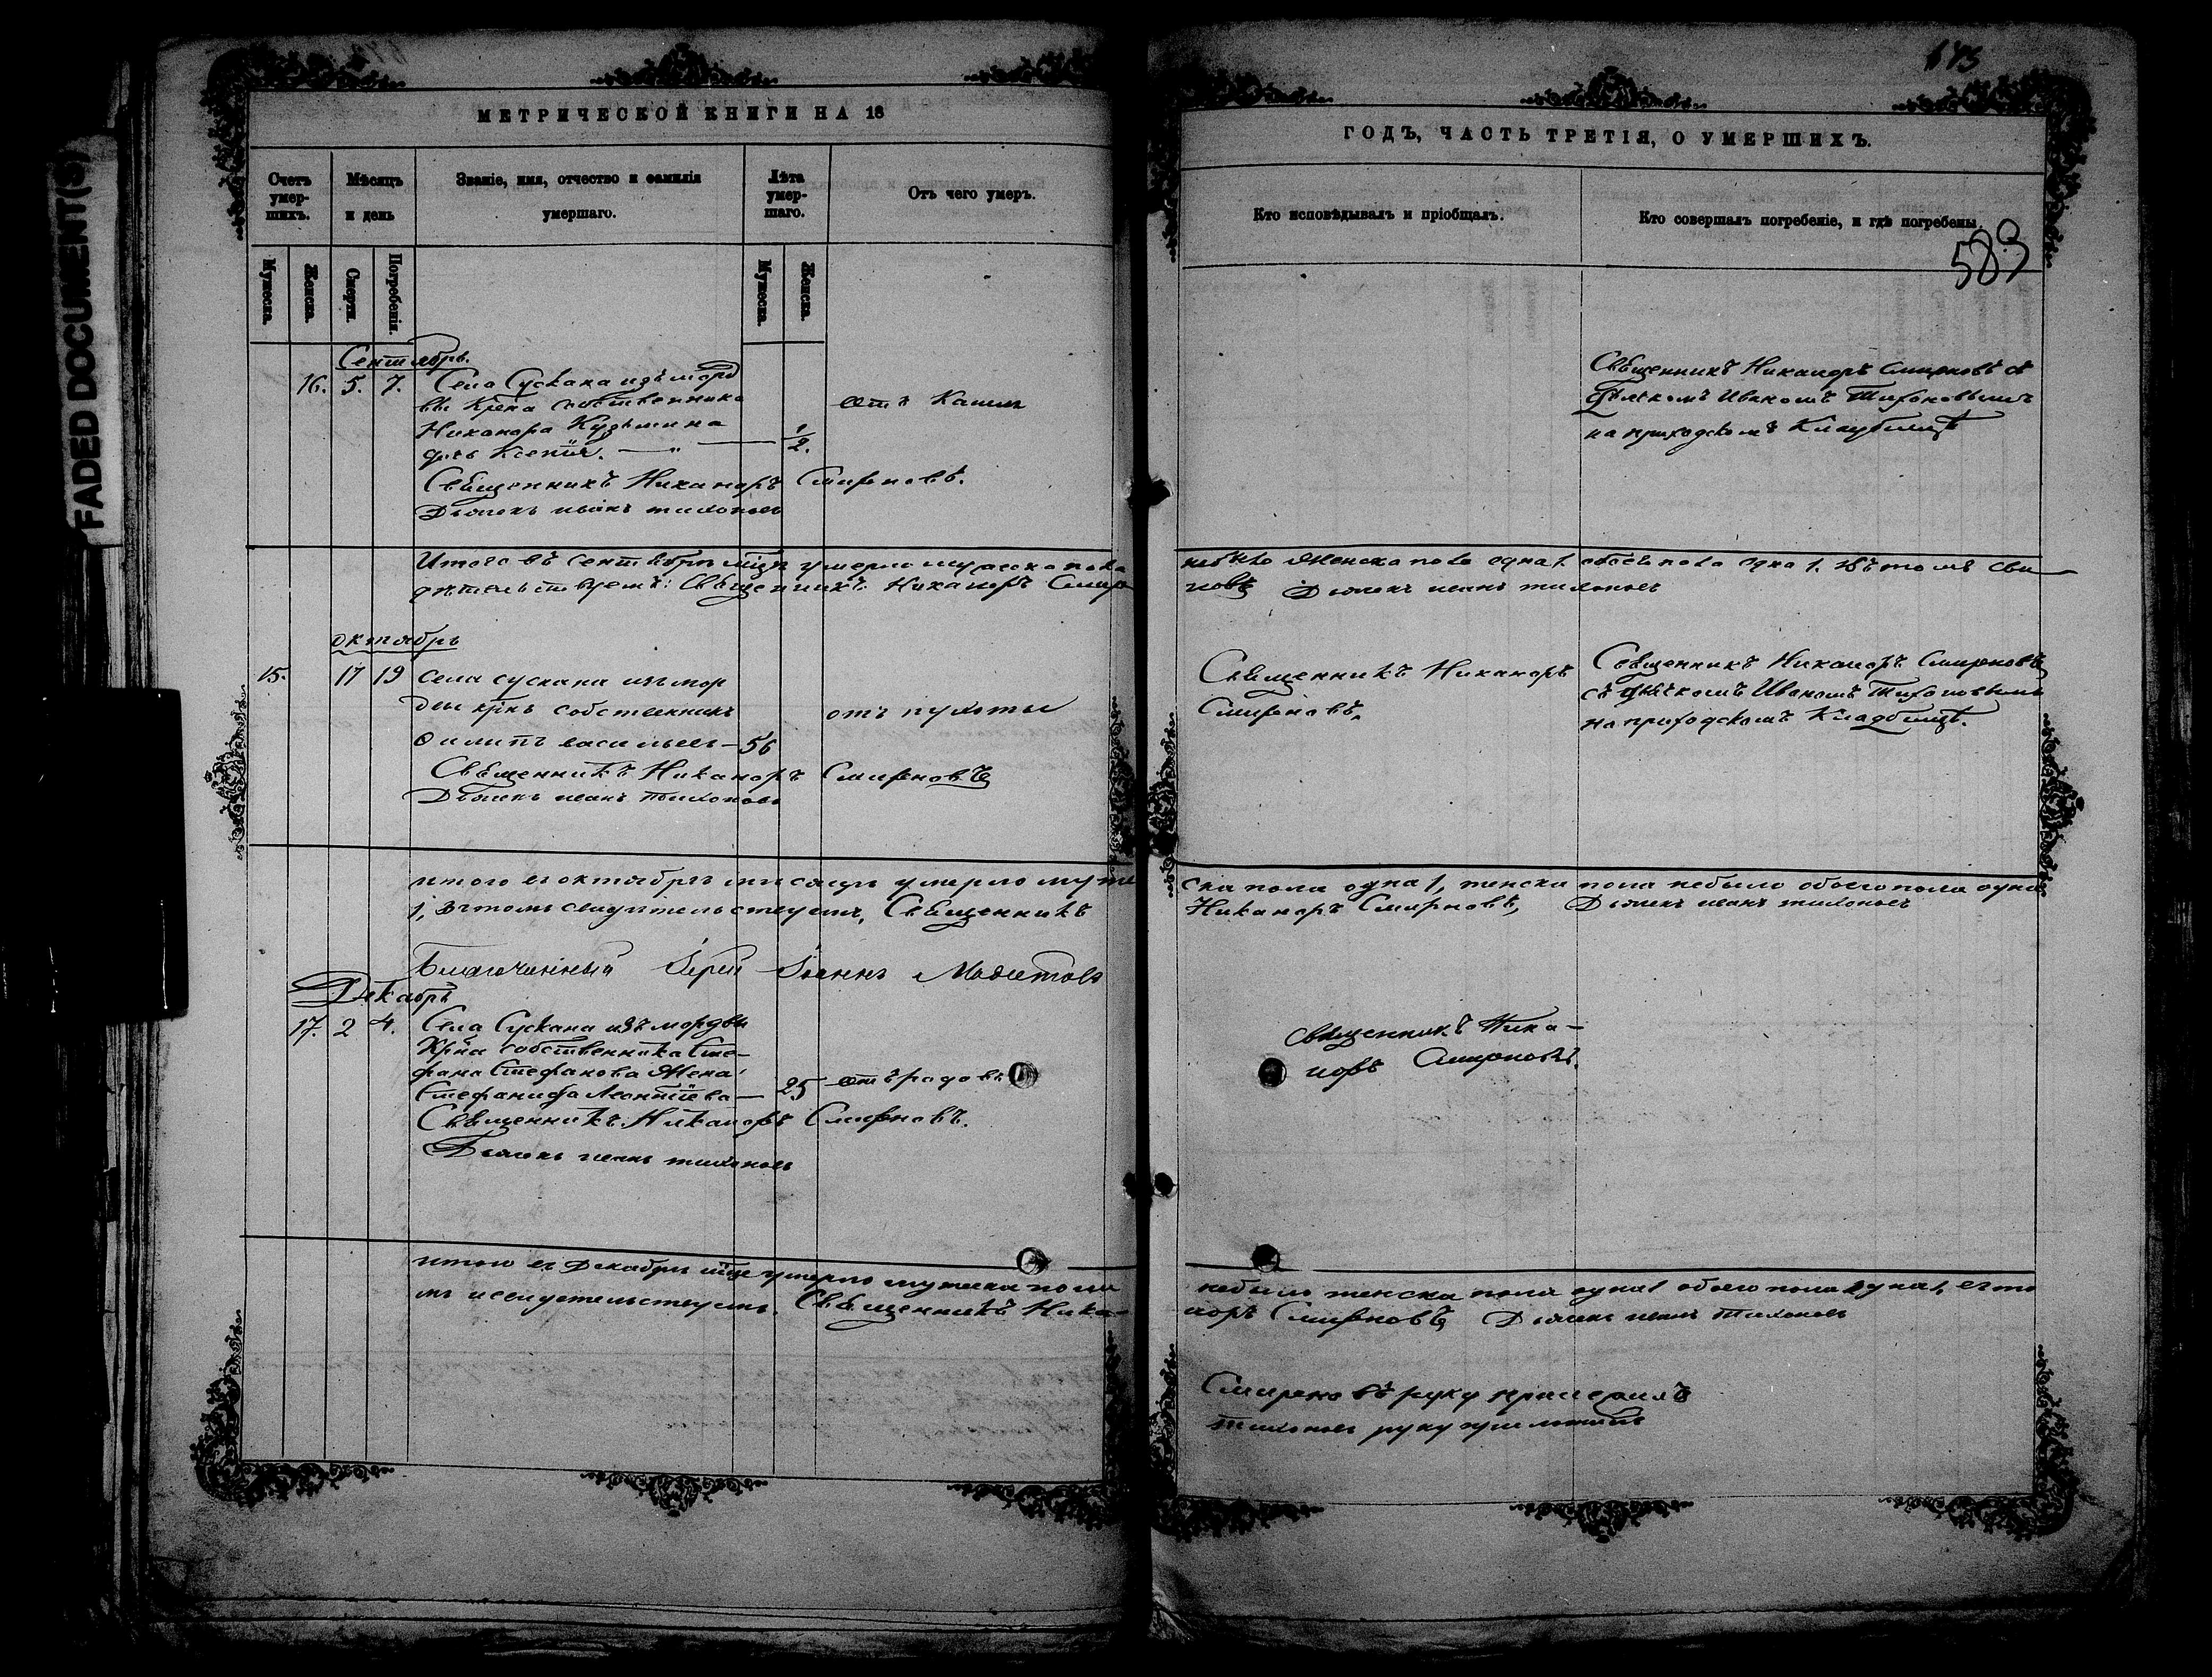 FADED DOCUMENT(S)
МЕТРИЧЕСКОЙ КНИГИ НА 18
Счетъ умер-шихъ.
Мѣсяцъ и день
Званіе, имя, отчество и фамилія умершаго.
Лѣта умер-шаго.
Отъ чего умеръ.
Мужеска.
Женска.
Смерти.
Погребенія.
Мужеска.
Женска.
Сентябрь.
16. 5. 7. Села Сускана изъ морд
вы Крѣна собственника
отъ Кашля
Никанора Кузьмина
дочь Ксенія. — " — 1/2.
Священникъ Никаноръ Смирновъ.
Дьячекъ иванъ тихоновъ
Итого въ сентябрѣ мцѣ умерло мужеска пола
дѣтельствуемъ: Священникъ Никаноръ Смир
октябрь
15. 17 19 села сускана изъ мор
двы крѣн собственникъ
отъ пухоты
Филипъ васильевъ — 56
Священникъ Никаноръ Смирновъ
Дьячекъ иванъ тихоновъ
итого въ октябрѣ мисяцѣ умерло муже
1, вътомъ свидѣтельствуемъ, Священникъ
Благочинный Іерей Іоаннъ
Декабрь
17. 2 4. Села Сускана изъ мордвы
Крѣна собственника Сте-
фана Стефанова жена
Стефанида Леонтіева — 25 отъ родовъ
Священникъ Никаноръ Смирновъ.
Дьячекъ иванъ тихоновъ
итого въ Декабрѣ мцѣ умерло мужеска пола
мъ и свидѣтельствуемъ. Священникъ Ника-
643
ГОДЪ, ЧАСТЬ ТРЕТІЯ, О УМЕРШИХЪ.
Кто исповѣдывалъ и пріобщалъ.
Кто совершалъ погребеніе, и гдѣ погребены.
583
Священникъ Никаноръ Смирновъ съ
дьячкомъ Иваномъ Тихоновымъ
на приходскомъ Кладбищѣ
небыло Женска пола одна 1. обоего пола одна 1. въ томъ сви
новъ Дьячекъ иванъ тихоновъ
Священникъ Никаноръ
Смирновъ.
Священникъ Никаноръ Смирновъ
съ дьячкомъ Иваномъ Тихоновымъ
на приходскомъ Кладбищѣ.
ска пола одна 1, женска пола небыло обоего пола одна
Никаноръ Смирновъ, Дьячекъ иванъ тихоновъ
Священникъ Ника-
норъ Смирновъ.
небыло женска пола одна 1 обоего пола одна 1, въ то
норъ Смирновъ Дьячекъ иванъ тихоновъ
Смирновъ руку
тихоновъ руку приложилъ